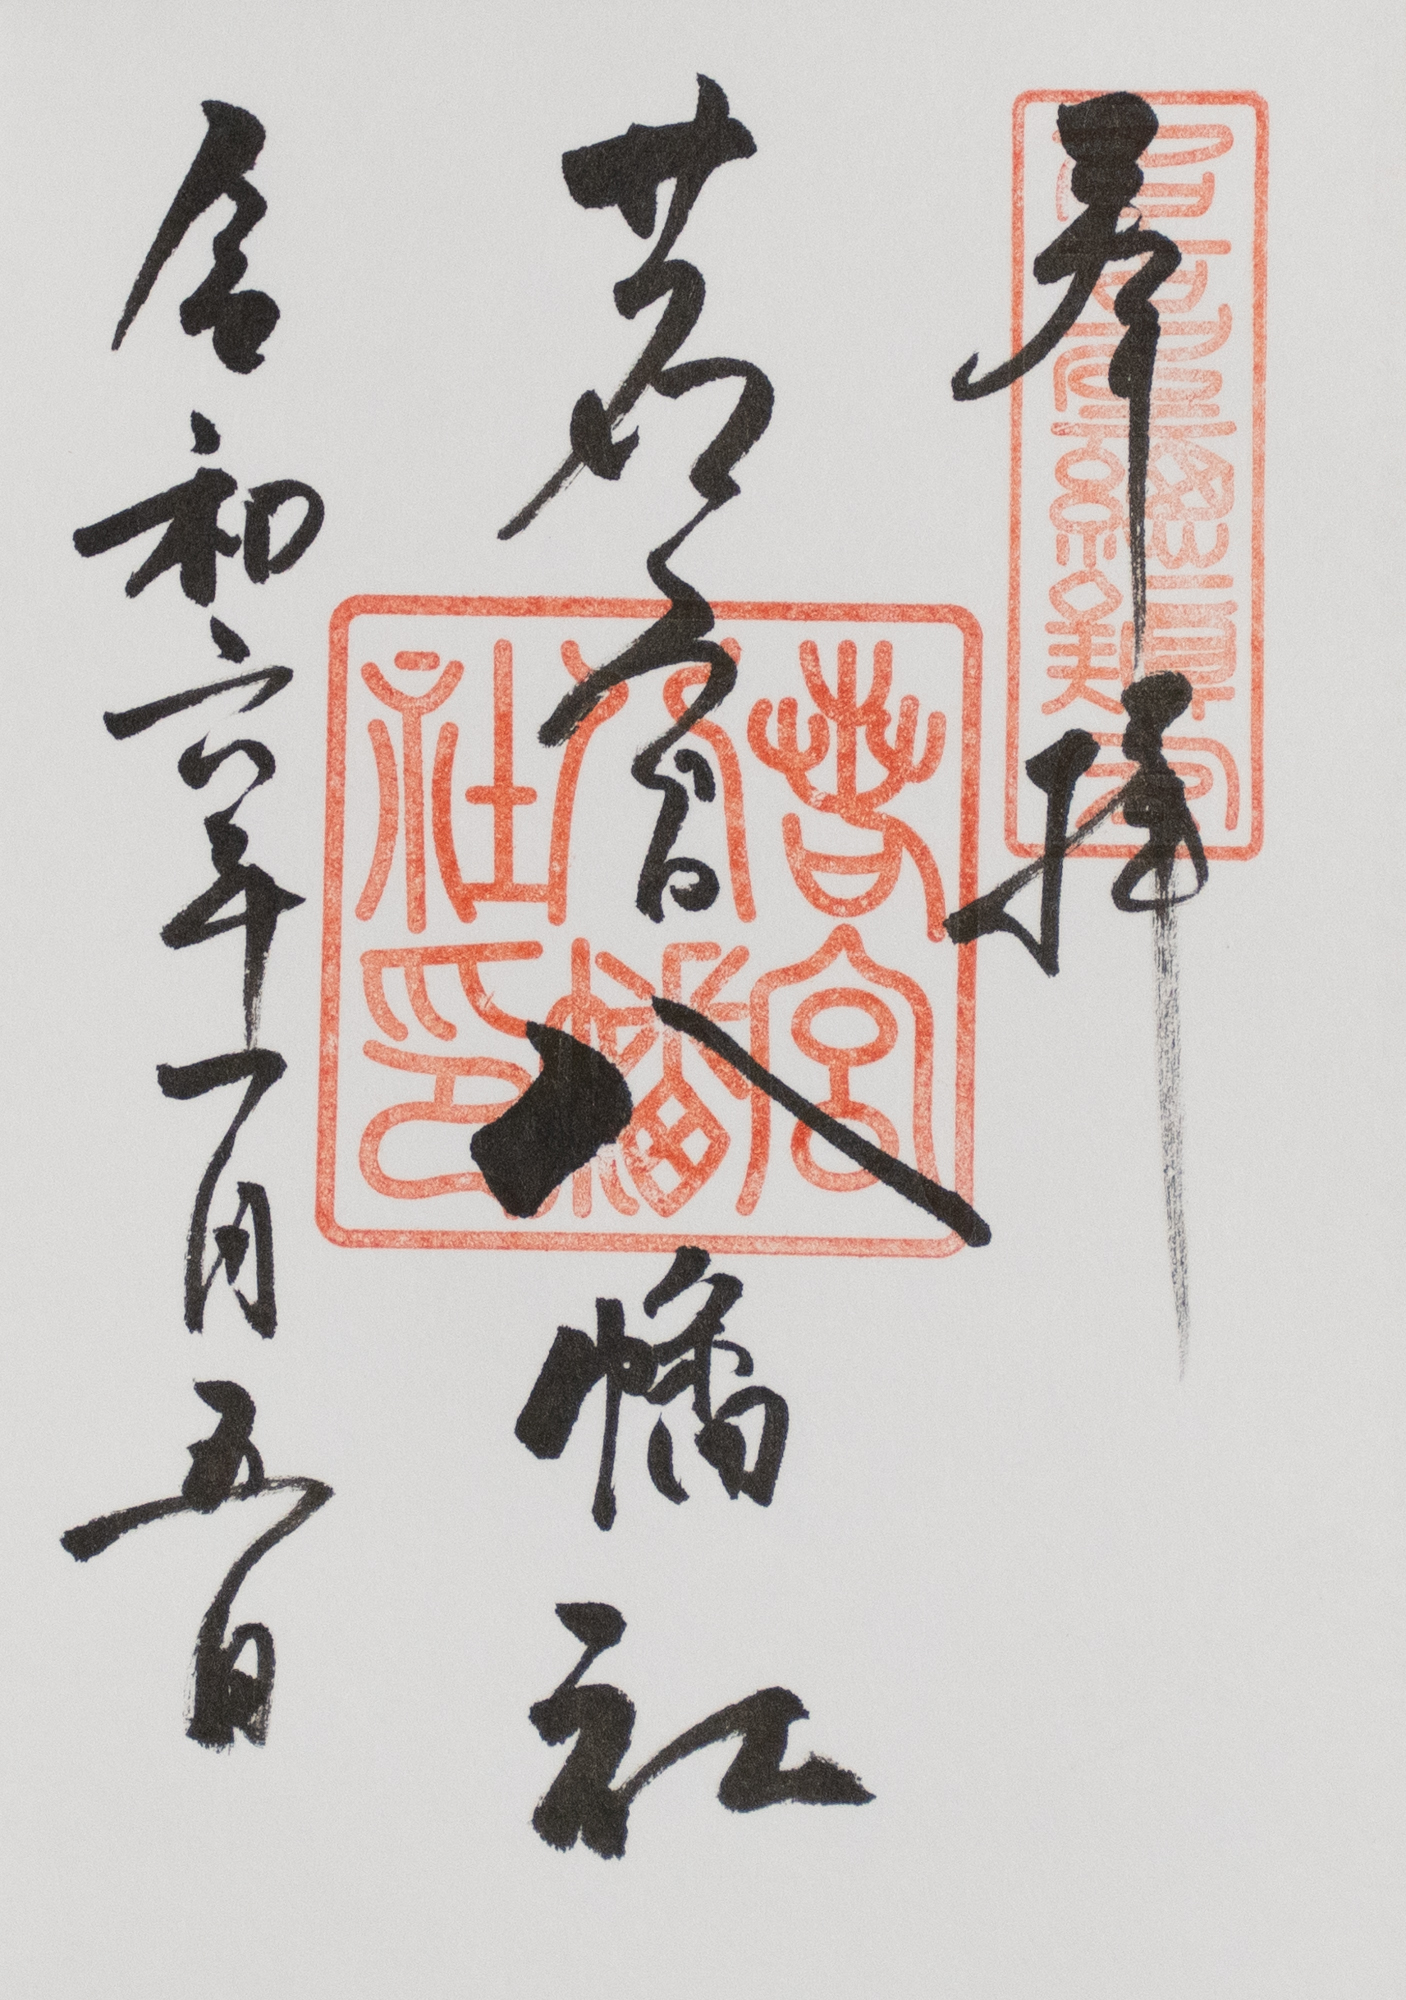 奉拝
若宮八幡社
令和六年一月五日
若宮八幡社印